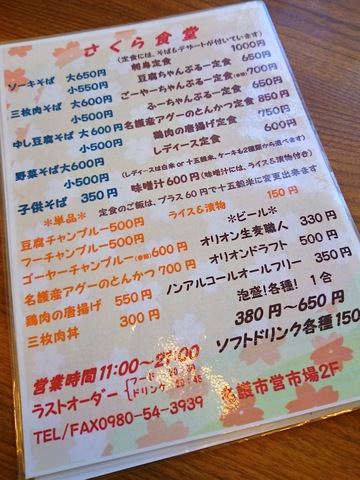 さくら食堂
(定食には、そば&デザートが付いています)
ソーキそば 大650円
小550円
三枚肉そば 大600円
小500円
ゆし豆腐そば 大600円
小500円
野菜そば 大600円
小500円
子供そば 350円
刺身定食 1000円
豆腐ちゃんぷるー定食 650円
ごーやーちゃんぷるー定食(季節) 700円
ふーちゃんぷるー定食 650円
名護産アグーのとんかつ定食 850円
鶏肉の唐揚げ定食 750円
レディース定食 600円
(レディースは白米 or 十五穀米、ケーキも2種類から選べます)
味噌汁600円(味噌汁には、ライス&漬物付き)
定食のご飯は、プラス60円で十五穀米に変更出来ます
*単品* ライス&漬物 150円
豆腐チャンプルー500円
フーチャンプルー500円
ゴーヤーチャンプルー(季節)600円
名護産アグーのとんかつ 700円
鶏肉の唐揚げ 550円
三枚肉丼 300円
*ビール*
オリオン生麦職人 330円
オリオンドラフト 500円
ノンアルコールオールフリー 350円
泡盛!各種! 1合
380円~650円
ソフトドリンク各種150
営業時間11:00~21:00
ラストオーダー
フード
ドリンク
TEL/FAX0980-54-3939
名護市営市場2F